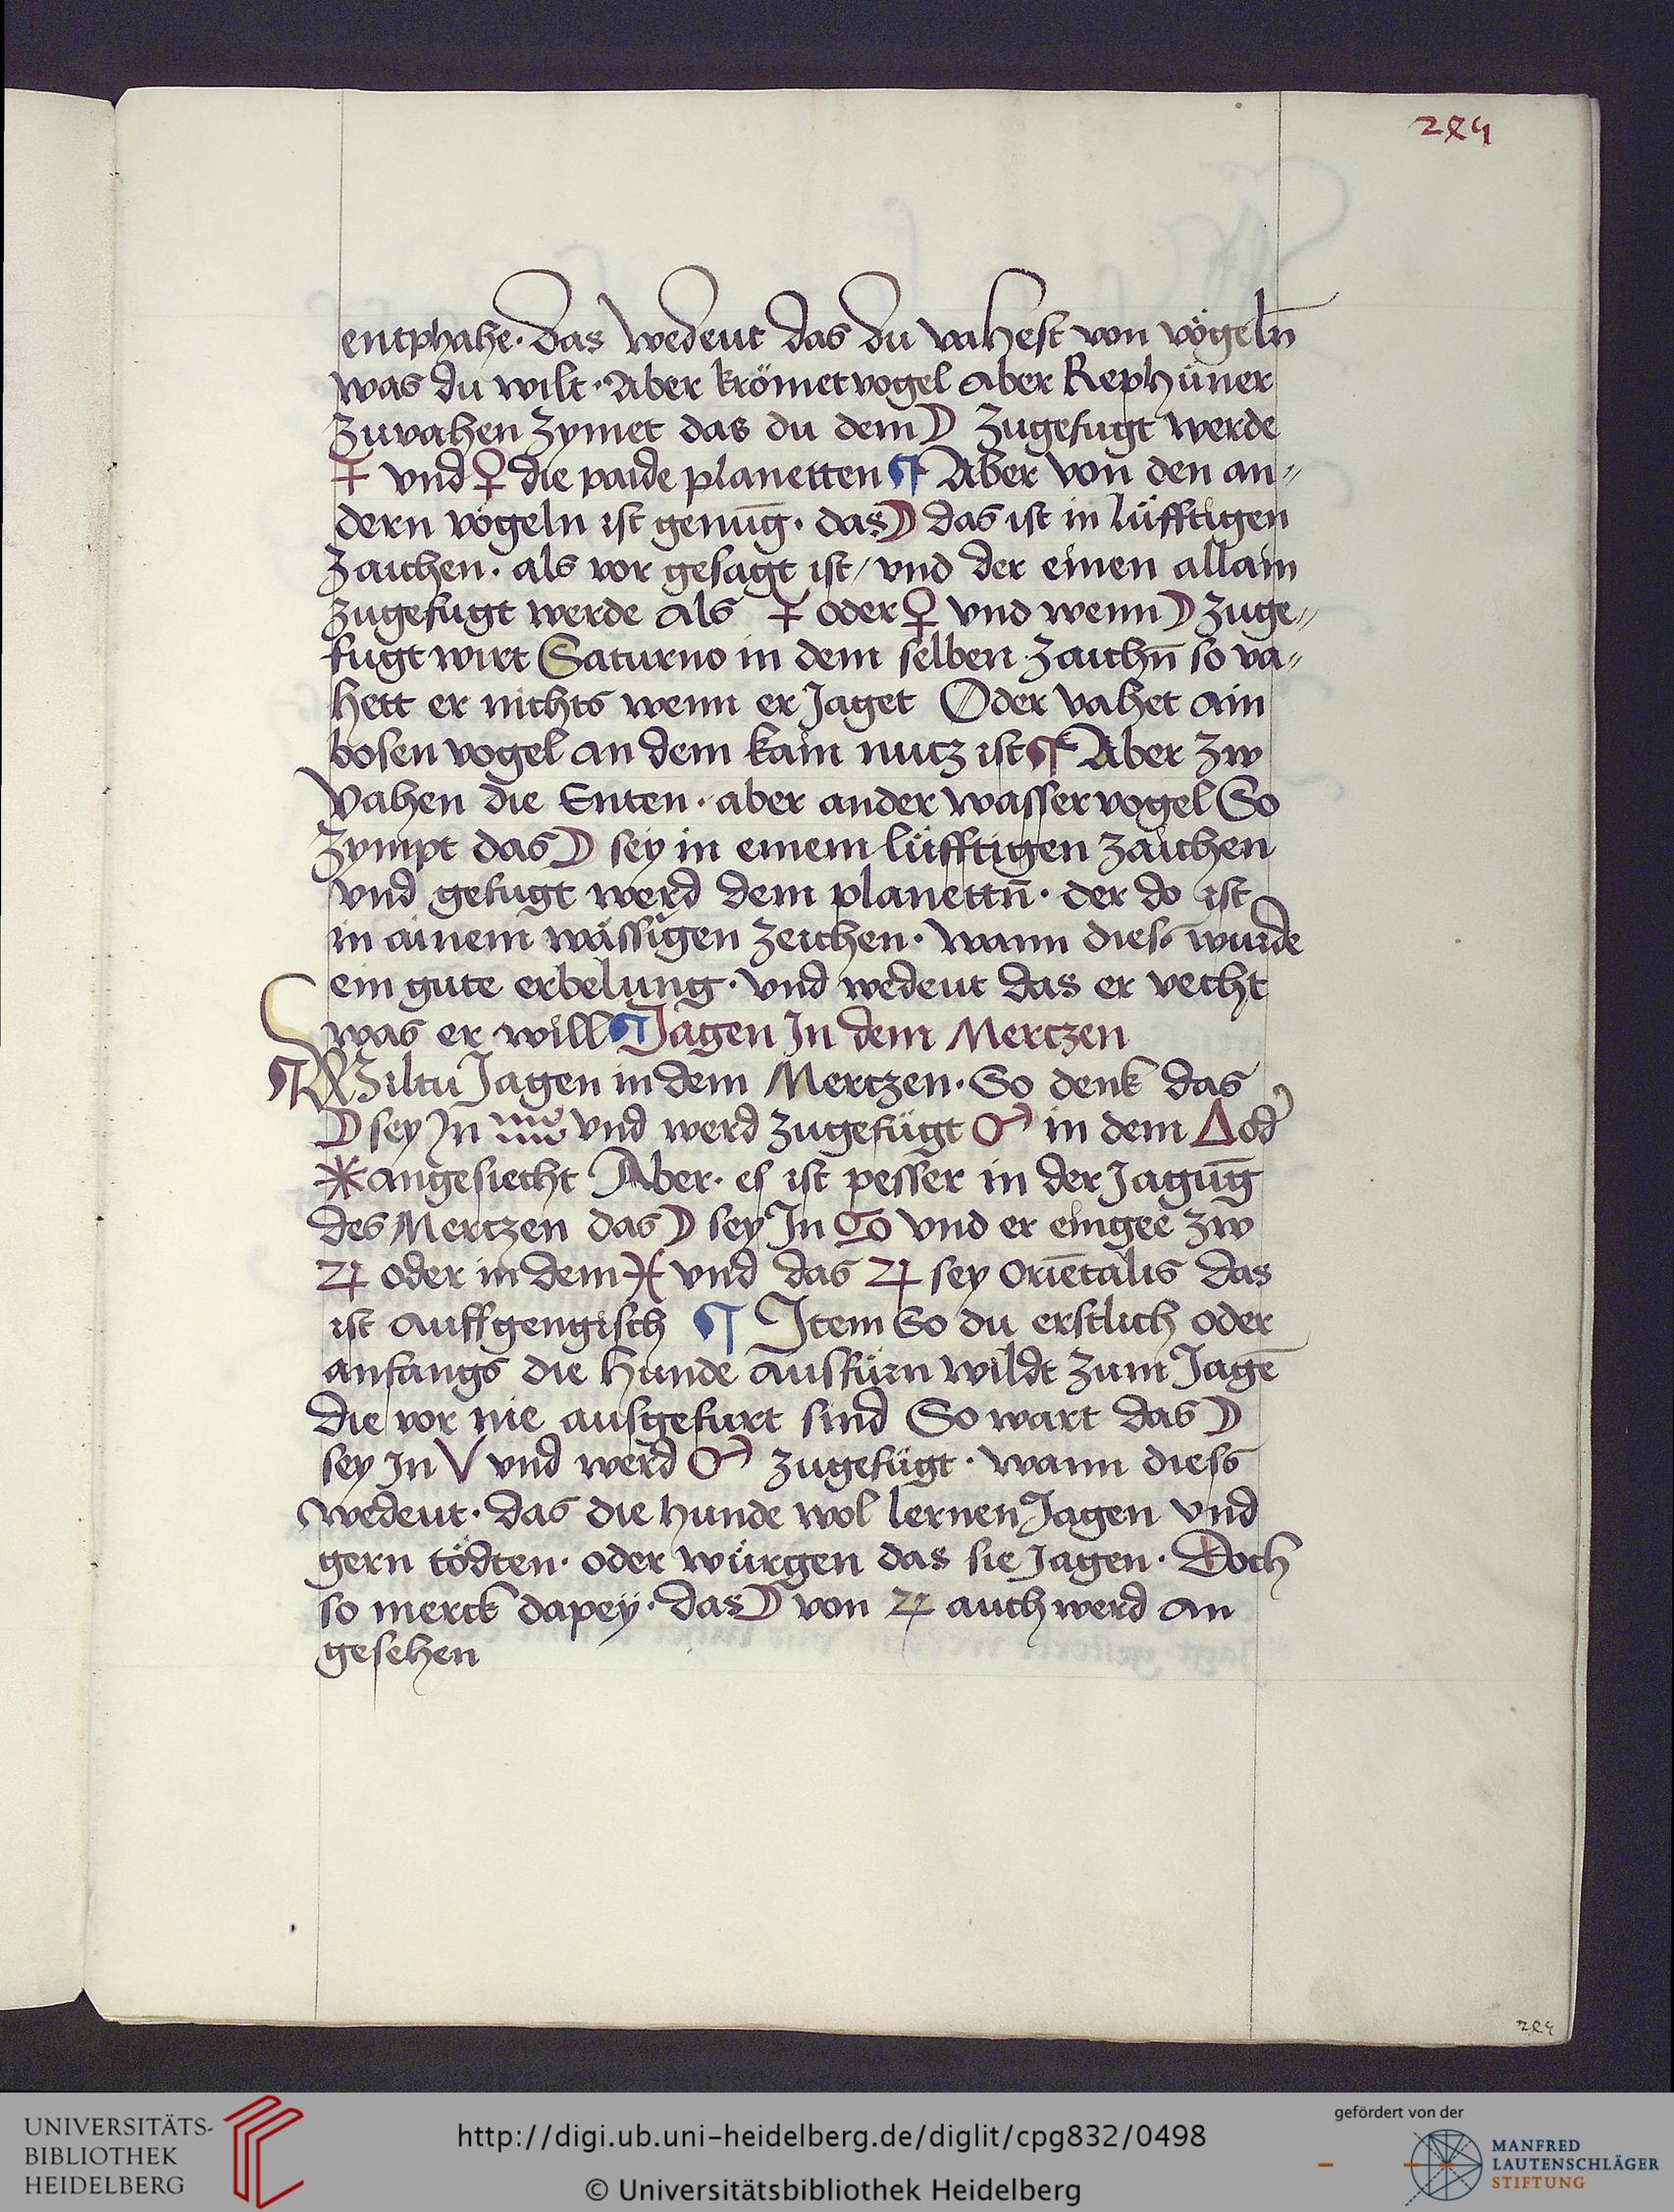 244
entphahe · das wedeut das du vahest von vögeln̄
was du wilt · Aber krömetvogel aber Rephüner
zuvahen zymet das du dem ☽ zugefugt werde
☿ vnd ♀ die paide planetten ¶ Aber von den an〃
dern vögeln ist genūg · das ☽ das ist in lüfftigen
zaichen · als vor gesagt ist / vnd der einen allain
zugefugt werde als ☿ oder ♀ vnd wenn ☽ zuge〃
fugt wirt Saturno in dem selben zaichn̄ so va〃
hett er nichts wenn er Jaget Oder vahet ain
bosen vogel an dem kain nutz ist ¶ Aber zw
vahen die Enten · aber ander wasser vogel So
zympt das ☽ sey in einem lüfftigen zaichen
vnd gefugt werd dem planettn̄ · der do ist
in ainem wässigen zeichen · wann dies wurde
ein gute erbelung · vnd wedeut das er vecht
was er will ¶ Jagen In dem Mertzen
¶ Wiltu Jagen in dem Mertzen · So denk das
☽ sey In ♒ vnd werd zugefügt ♂ in dem △ od̕
⚹ angesiecht Aber · es ist pesser in der Jagūg
des Mertzen das ☽ sey In ♋ vnd er eingee zw
♃ oder in dem ♓ vnd das ♃ sey oriētalis das
ist auffgengisch ¶ Item So du erstlich oder
anfangs die hunde ausfürn wildt zum Jagē
die vor nie ausgefurt sind So wart das ☽
sey In ♈ vnd werd ♂ zugefügt · wann diess
wedeut · das die hunde wol lernen Jagen vnd
gern tödten · oder würgen das sie Jagen · Doch
so merck dapey · das ☽ von ♃ auch werd an
gesehen
244
UNIVERSITÄTS-
BIBLIOTHEK
HEIDELBERG
http://digi.ub.uni-heidelberg.de/diglit/cpg832/0498
© Universitätsbibliothek Heidelberg
gefördert von der
MANFRED
LAUTENSCHLÄGER
STIFTUNG